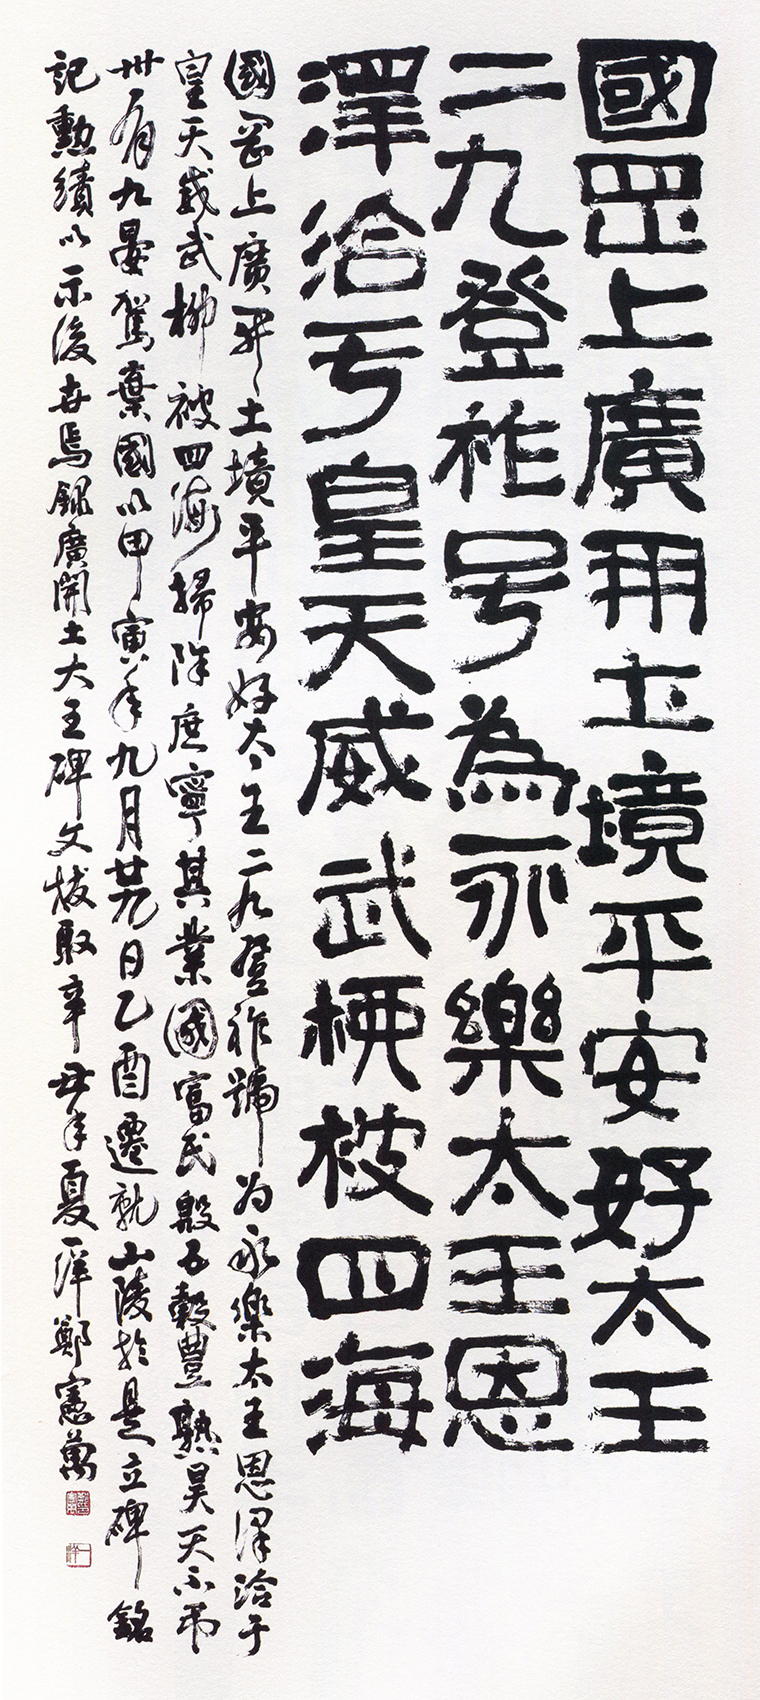 國罡上廣開土境平安好太王
二九登祚号為永樂太王恩
澤洽于皇天威武柳被四海
國罡上廣開土境平安好太王二九登祚號为永樂太王恩澤洽于
皇天威武柳被四海掃除庶寧其業國富民殷五穀豊熟昊天不弔
卅有九晏駕棄國以甲寅年九月廿九日乙酉遷就山陵於是立碑銘
記勲績以示後世焉錄廣開土大王碑文拔取辛丑年夏一洋鄭憲萬